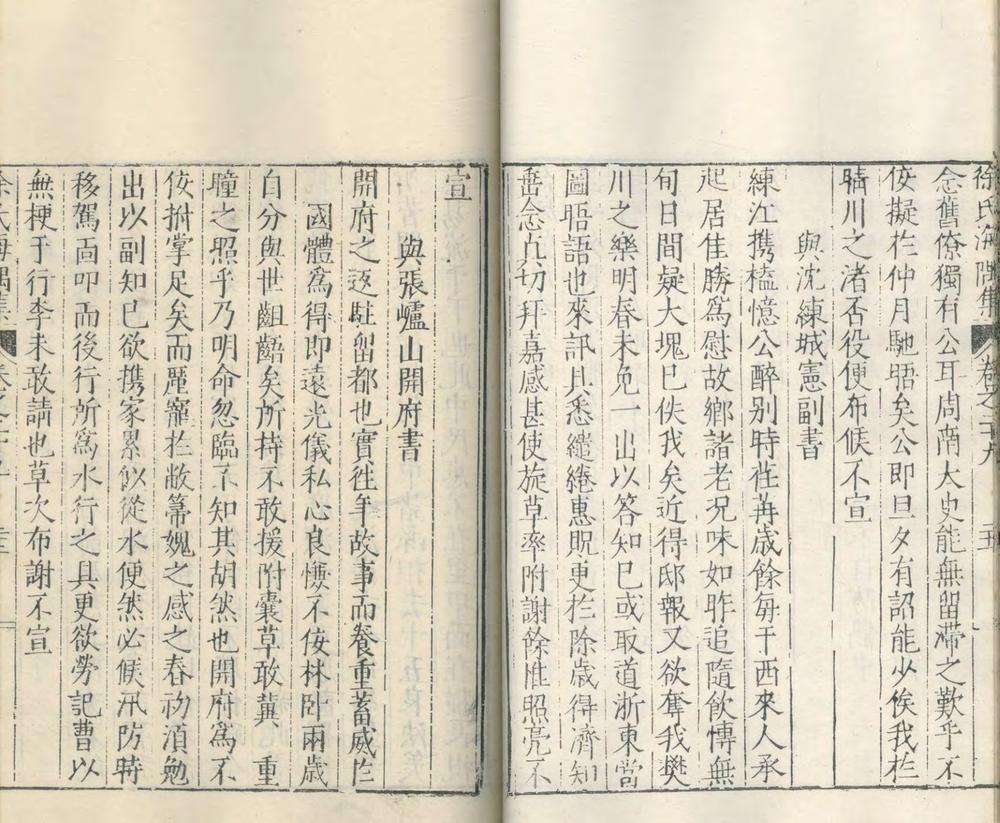 徐氏海隅集 卷之二十九 二五
念舊僚獨有公耳周南大史能無留滯之歎乎不
佞擬於仲月馳晤矣公即旦夕有詔能少俟我於
晴川之渚否役便布候不宣
與沈練城憲副書
練江携榼憶公醉别時荏苒歲餘每干西來人承
起居佳勝爲慰故鄉諸老况味如昨追隨飲愽無
旬日間疑大塊已佚我矣近得邸報又欲奪我樊
川之樂明春未免一出以答知巳或取道浙東當
圖晤語也來訊具悉繾綣惠貺更於除歲得濟知
嵒念真切拜嘉感甚使旋草率附謝餘惟照亮不
宣
與張爐山開府書
開府之返駐留都也實徃年故事而養重蓄威於
國體爲得即遠光儀私心良慊不佞林卧兩歲
自分與世齟齬矣所持不敢援附囊草敢冀 重
瞳之照乎乃明命忽臨不知其胡然也開府爲不
佞拊掌足矣而厪寵於敝箒媿之感之春初湏勉
出以副知巳欲携家累似從水便然必候汛防時
移駕靣叩而後行所爲水行之具更欲勞記曹以
無梗于行李未敢請也草次布謝不宣
徐氏海隅集 卷之二十九